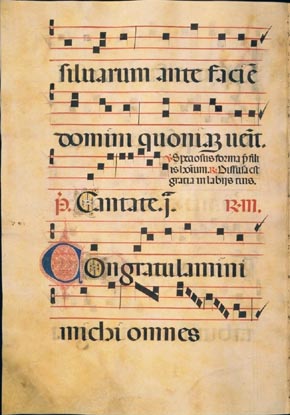 siluarum ante facie
domini quoniaz uenit.
Speciosus forma p fili
is hoium. Diffusa est
gratia in labijs tuis.
p. Cantate. j. R. III.
Congratulamini
michi omnes